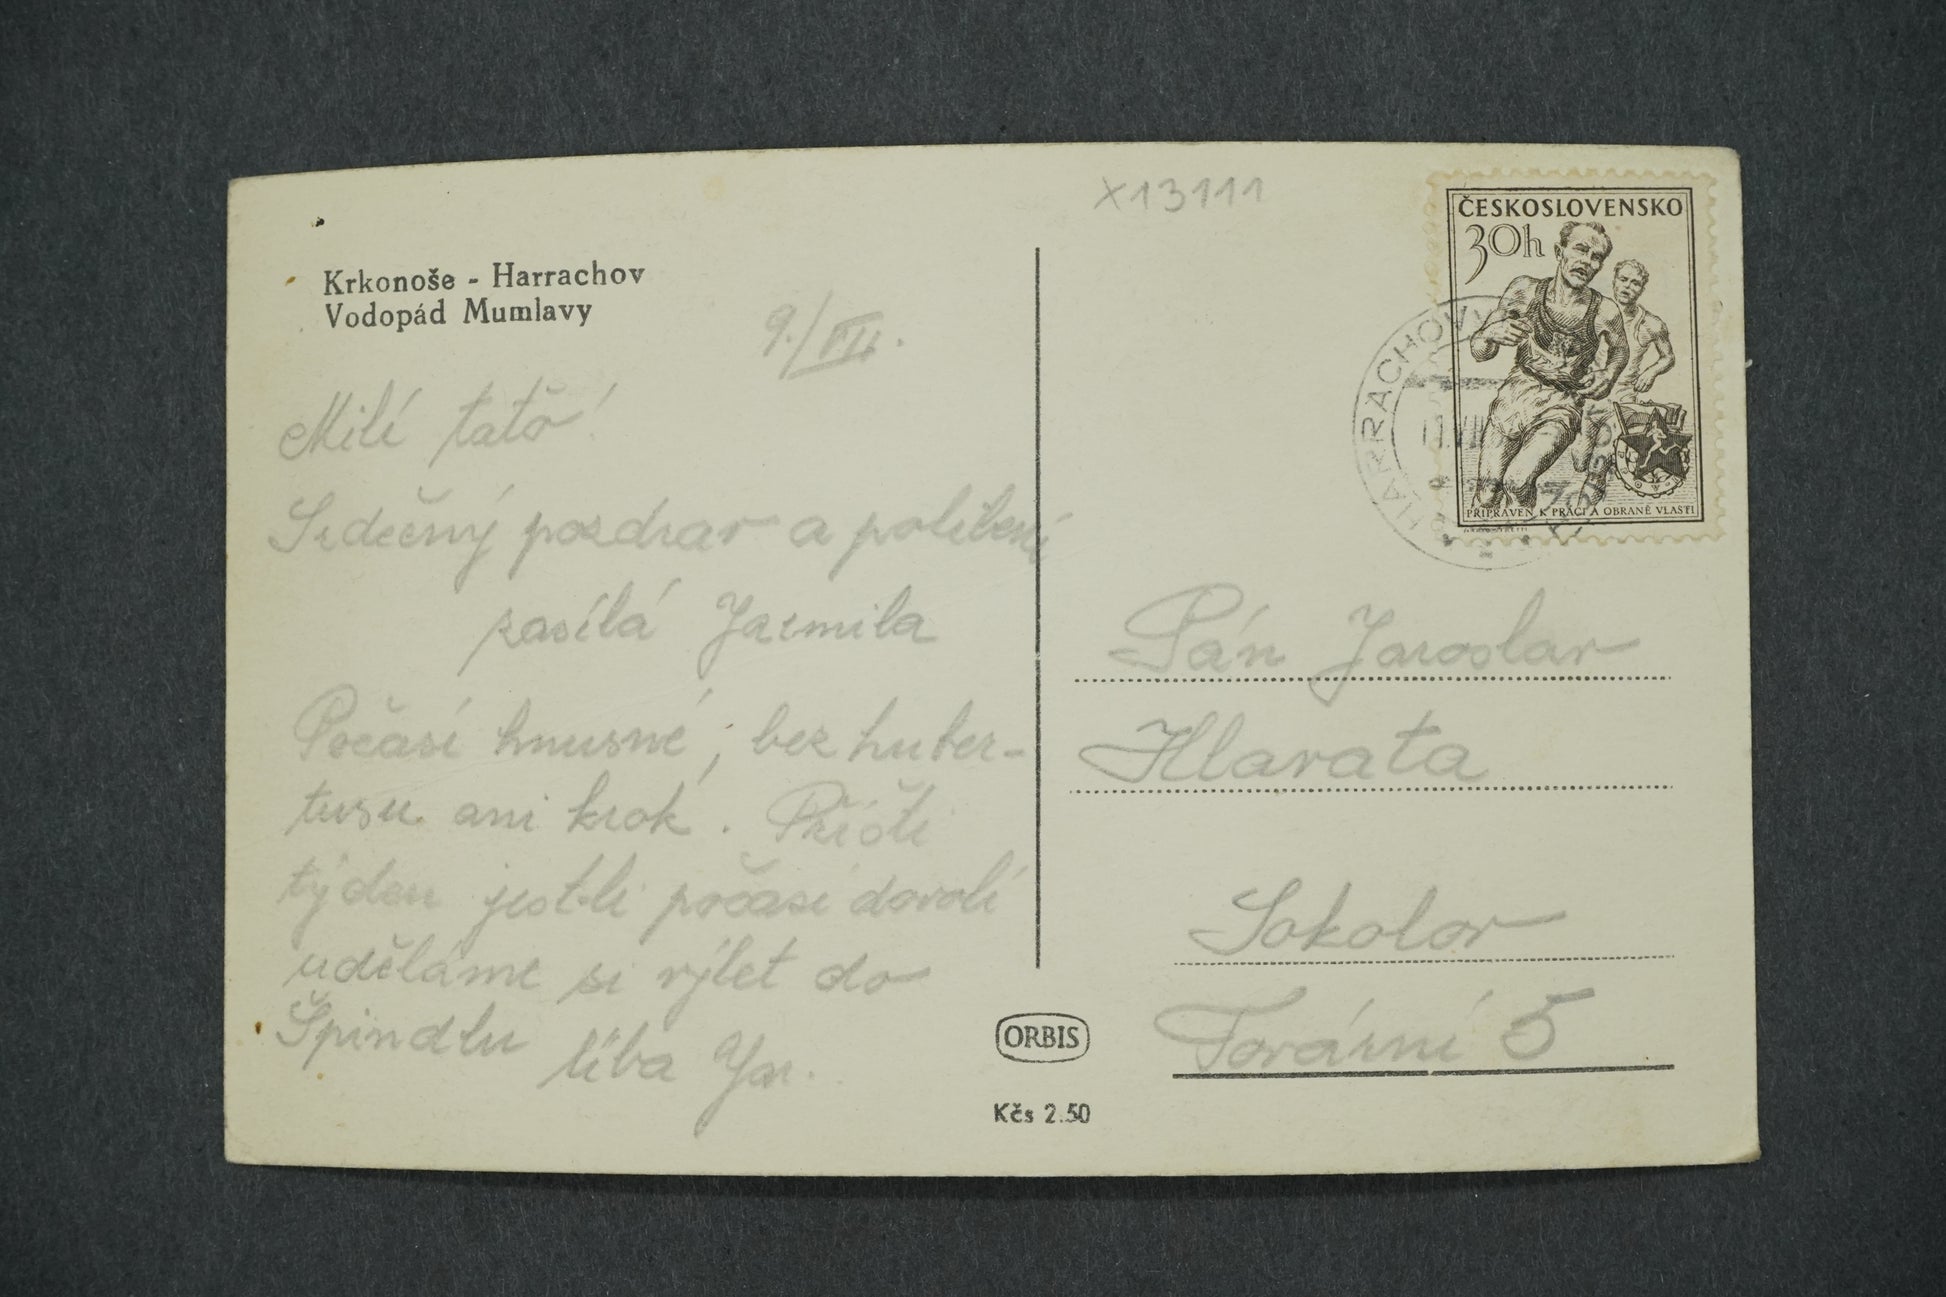 x13111
ČESKOSLOVENSKO
30h
PŘIPRAVEN K PRÁCI A OBRANĚ VLASTI
HARRACHOV
Krkonoše - Harrachov
Vodopád Mumlavy
9./VII.
Milí tató!
Srdečný pozdrav a políbení
zasílá Jarmila
Počasí hnusné, bez huber-
tusu ani krok. Příští
týden jest-li počasí dovolí
uděláme si výlet do
Špindlu líba Jar.
Pán Jaroslav
Hlavata
Sokolov
Tovární 5
ORBIS
Kčs 2.50